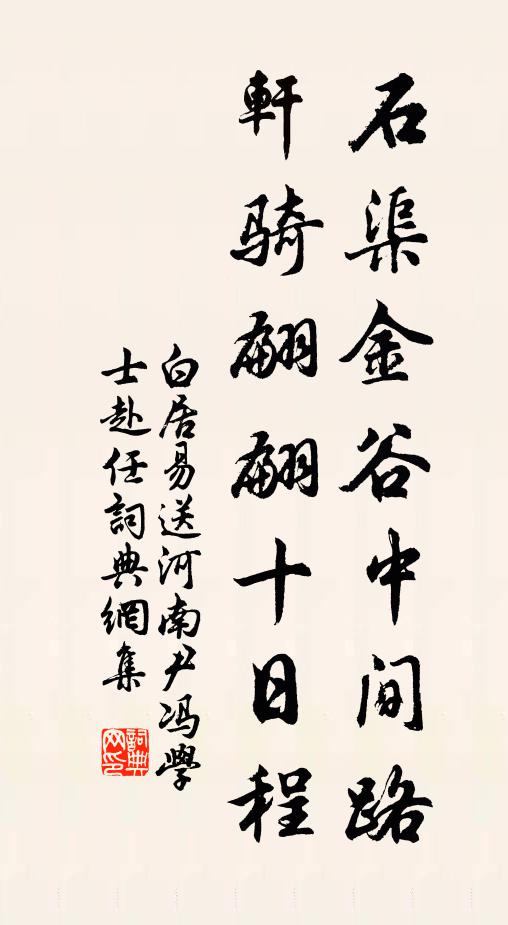 石渠金谷中间路
軒骑翩翩十日程
白居易送河南尹冯學
士赴任詞典網集
詞典網印